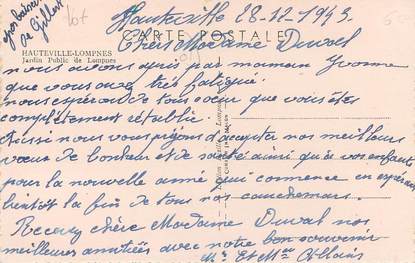 gros baisers
de Gilbert
lot
Hauteville 28-12-1943
CARTE POSTALE
Chère Madame Duval
HAUTEVILLE-LOMPNES
Jardin Public de Lompnes
nous avons appris par maman Yvonne
que vous avez très fatigué.
nous espérons de tous cœur que vous êtes
complètement rétablie.
Aussi nous vous prions d'accepter nos meilleurs
vœux de bonheur et de santé ainsi qu'à vos enfants
pour la nouvelle année qui commence en espérant
bientôt la fin de tous nos cauchemars.
Recevez chère Madame Duval nos
meilleures amitiées avec notre bon souvenir
Mr et Mme